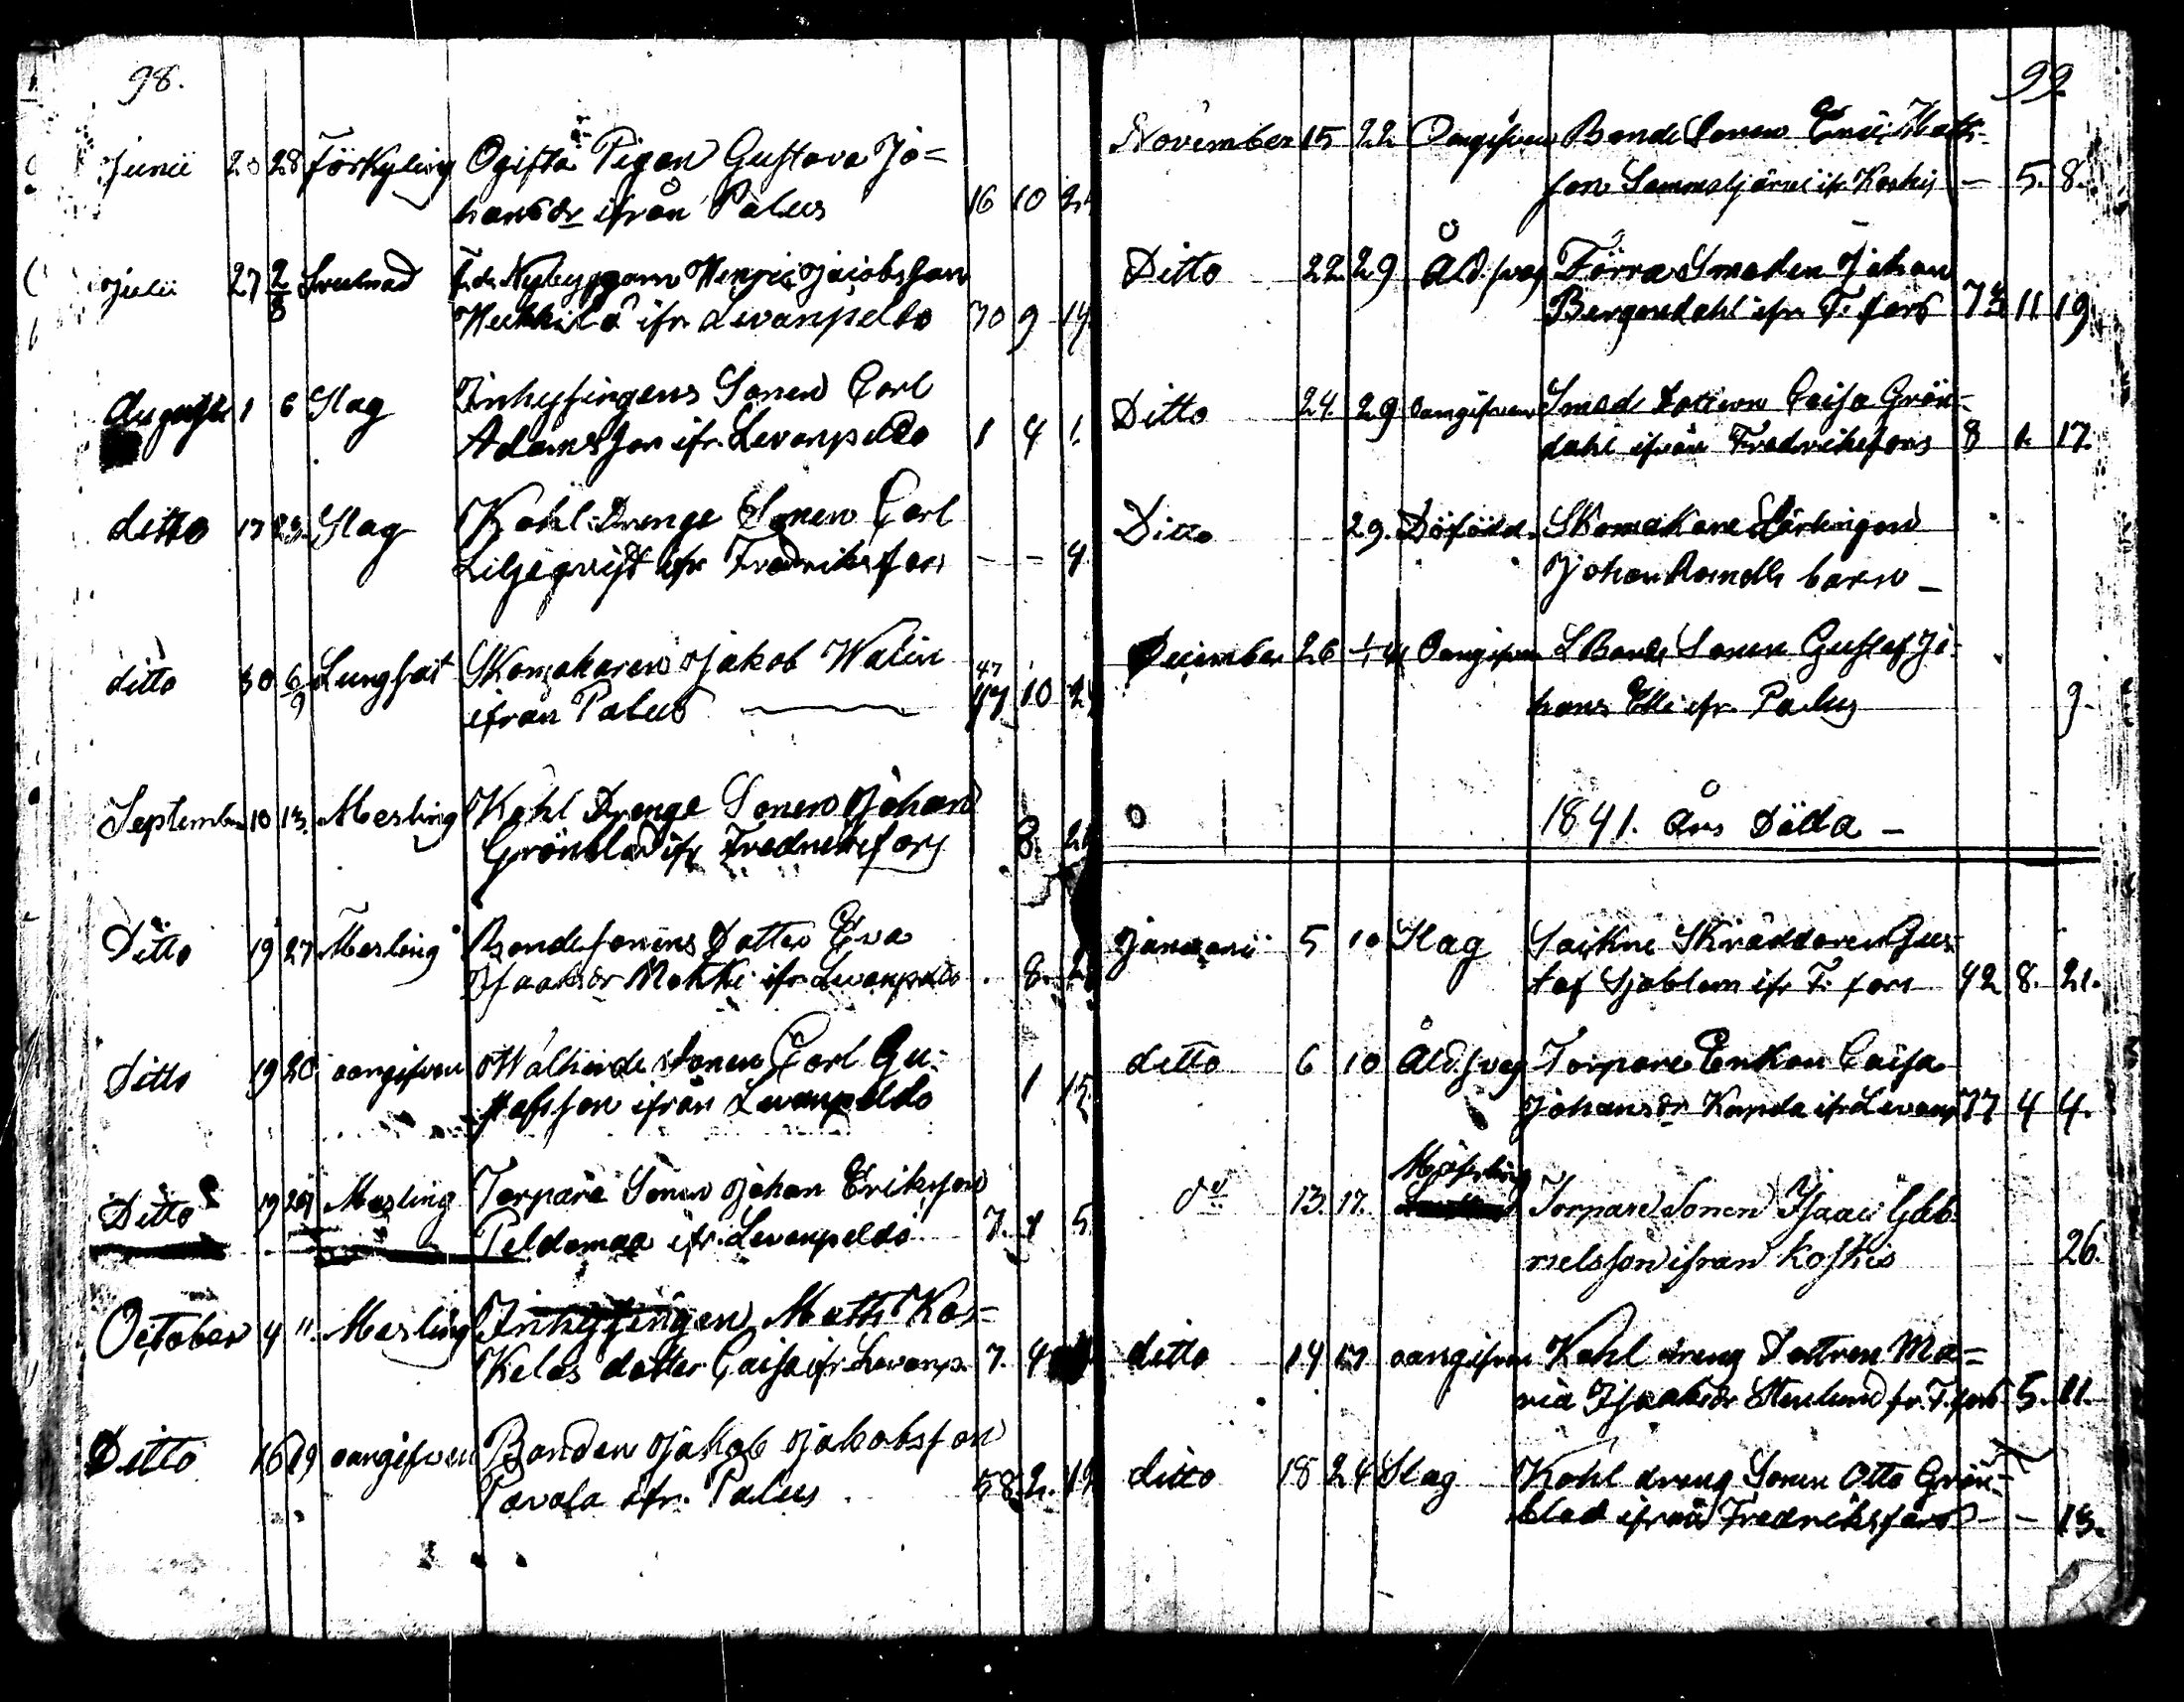 98.
Junii 20 28 Förkyling Ogifta Pigan Gustava Jo=
hansdr ifrån Palus 16 10
Julii 27 2/8 Svulnad F.d. Nybyggarn Henric Jacobsson
Heikkilä ifr Levanpelto 70 9 14
Augusti 1 6 Slag Inhysingens Sonen Carl
Adamsson ifr. Levanpelto 1 4 1.
ditto 17 23. Slag Kohl Drenge Sonen Carl
Liljeqvist ifr Fredriksfors - - 9.
ditto 30 6/9 Lungsot Skomakaren Jakob Walin 47
ifrån Palus 10
September 10 13. Mesling Kohl Drenge Sonen Johan
Grönblad ifr Fredriksfors 8.
Ditto 19 27 Mesling Bondesonens Dotter Eva
Isaaksdr ifr Levanpelto 8.
Ditto 19 20 oangifven Sonen Carl Gu=
stafsson ifrån Levanpelto 1 15
Ditto 19 Mesling Torpare Sonen Johan Eriksson
Peldomaa ifr. Levanpeldo 7. 5
October 4 11. Mesling Inhysingen Matts Kos=
kelas dotter Caisa ifr. Levanp. 7. 4
Ditto 16 19 oangifven Bonden Jakob Jakobsson
Pavola ifr. Palus 58 2. 12
99
November 15 22 Oangifven Bonde Sonen Eric Matts-
son ifr Koskis - 5. 8.
Ditto 22 29 Åld.svag Förra Smeden Johan
Bergendahl ifr F. fors 11 19
Ditto 24. 29 Oangifven Smeds Dottern Caisa Grön=
dahl ifrån Fredriksfors 8 1. 17.
Ditto 29. Döföd. Skomakare Lärlingen
Johan barn -
December 26 Oangifven Bonde Sonen Gustaf Jo-
hans Elli ifr. Palus 9.
1841. Års Döda -
Januarii 5 10 Slag Sockne Skräddaren Gus-
taf Sjöblom ifr F. fors 42 8. 21.
ditto 6 10 Åld.svag Torpare Enkan Caisa
Johansdr ifr Levanp 77 4 4.
do 13. 17. Mässling Torpare Sonen Isaac Gab-
rielsson ifrån Koskis 26.
ditto 14 17 oangifven Kohl dreng Dottren Ma=
ria Isaaksdr Stenlund fr. F. fors 5. 11.
ditto 18 24 Slag Kohl dreng Sonen Otto Grön=
blad ifrån Fredriksfors - - 13.